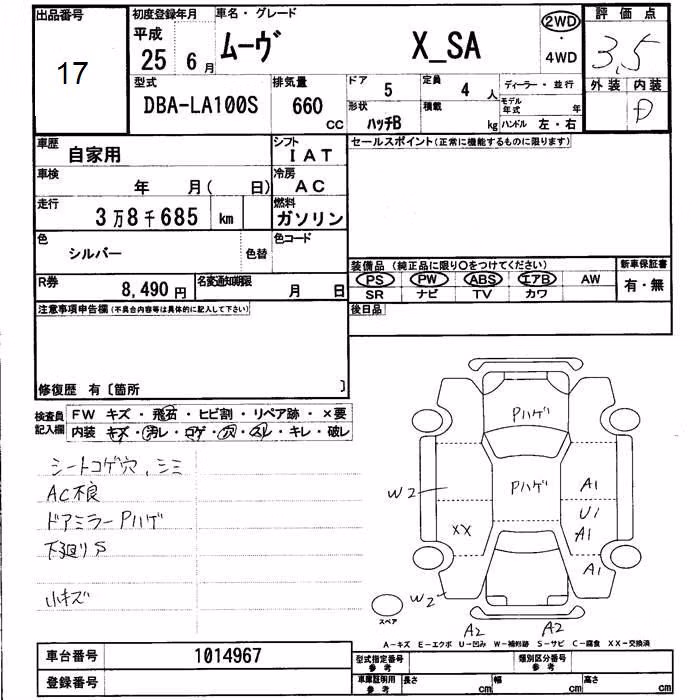 出品番号
17
初度登録年月
平成
25 6 月
車名・グレード
ムーヴ X_SA
2WD
・
4WD
評価点
3.5
外装 内装
D
型式
DBA-LA100S
排気量
660 CC
ドア
5
定員
4 人
形状
ハッチB
積載
kg
ディーラー・並行
モデル年式 年
ハンドル 左・右
車歴
自家用
シフト
IAT
車検
年 月( 日)
冷房
AC
走行
3万8千685 km
燃料
ガソリン
色
シルバー
色替
色コード
R券
8,490 円
名変通知期限
月 日
セールスポイント(正常に機能するものに限ります)
装備品(純正品に限り○をつけてください)
PS PW ABS エアB AW
SR ナビ TV カワ
新車保証書
有・無
後日品
注意事項申告欄(不具合内容等は具体的に記入して下さい)
修復歴 有〔箇所 〕
検査員記入欄
FW キズ・飛石・ヒビ割・リペア跡・×要
内装 キズ・汚レ・コゲ・穴・スレ・キレ・破レ
シートコゲ穴、シミ
AC不良
ドアミラーPハゲ
下廻りS
小キズ
Pハゲ
Pハゲ
W2
XX
A1
U1
A1
A1
W2
A2 A2
スペア
A-キズ E-エクボ U-凹み W-補修跡 S-サビ C-腐食 XX-交換済
車台番号
1014967
登録番号
型式指定番号
参考
類別区分番号
参考
車庫証明用
参考
長さ cm
幅 cm
高さ cm